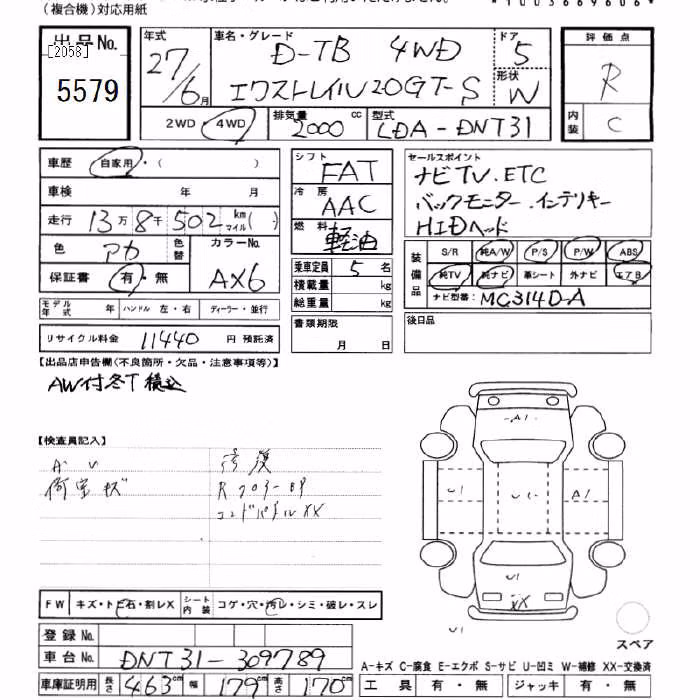 (複合機)対応用紙
*1003669606*
出品No.
[2058]
5579
年式
27/6月
車名・グレード
D-TB 4WD
エクストレイル20GT-S
ドア
5
形状
W
2WD・4WD
排気量
2000 cc
型式
LDA-DNT31
評価点
R
内装
C
車歴 自家用・( )
車検 年 月
走行 13万8千502 km マイル( )
色 アカ 色替 カラーNo.
AX6
保証書 有・無
モデル年式 年 ハンドル 左・右 ディーラー・並行
リサイクル料金 11440 円 預託済
シフト FAT
冷房 AAC
燃料 軽油
乗車定員 5 名
積載量 kg
総重量 kg
書類期限
月 日
セールスポイント
ナビTV.ETC
バックモニター.インテリキー
HIDヘッド
装備品
S/R 純A/W P/S P/W ABS
純TV 純ナビ 革シート 外ナビ エアB
ナビ型番: MC314D-A
後日品
【出品店申告欄(不良箇所・欠品・注意事項等)】
AW付冬T積込
【検査員記入】
修復
荷室キズ
コンドパネルXX
A1
U1
U1
A1
U1
XX
スペア
FW キズ・トビ石・割レX シート内装 コゲ・穴・汚レ・シミ・破レ・スレ
登録No.
車台No. DNT31-309789
車庫証明用 長さ 463cm 幅 179cm 高さ 170cm
A-キズ C-腐食 E-エクボ S-サビ U-凹ミ W-補修 XX-交換済
工具 有・無 ジャッキ 有・無